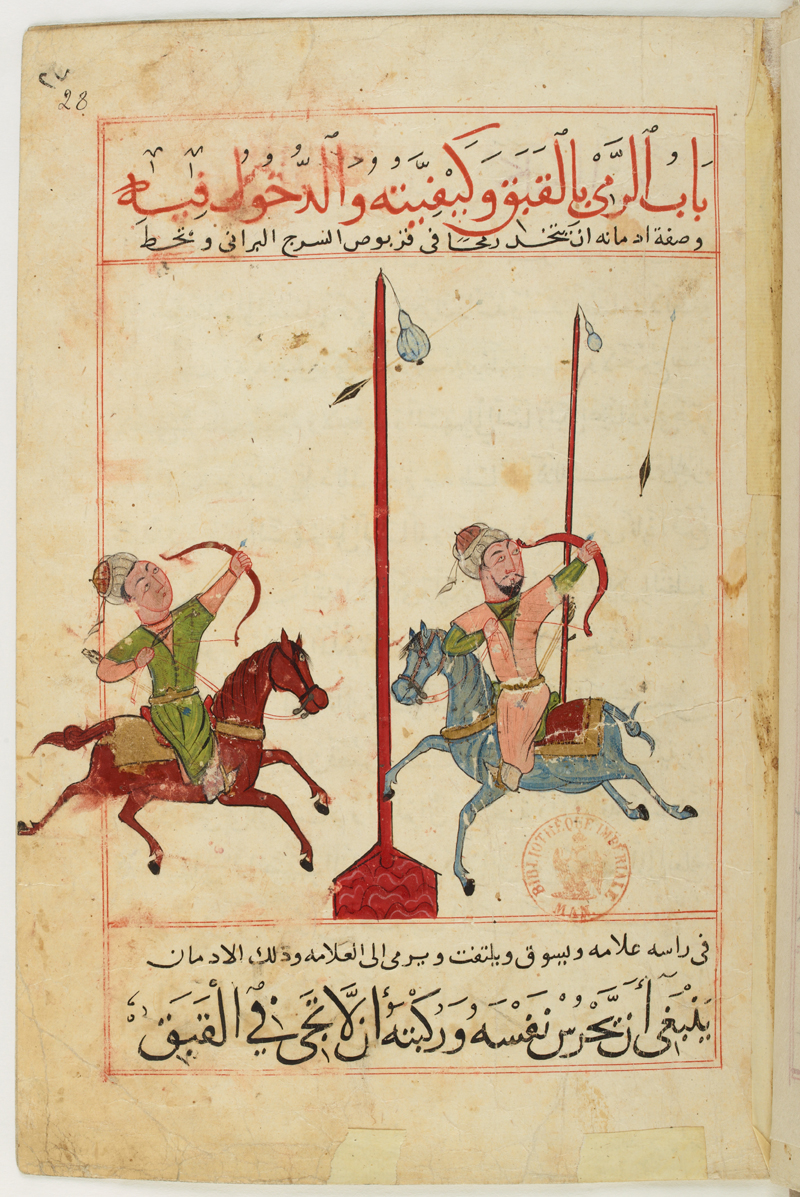 ٢٧
28
بَابُ الرَّمْىِ بِالقَبَقِ وَكَيْفِيَّتِه وَالدُّخُولِ فِيهِ
وصفة ادمانه ان يتخذ رمحا فى قربوص السرج البرانى و يحط
BIBLIOTHEQUE IMPERIALE
MAN.
فى راسه علامه ويسوق ويلتفت ويرمى الى العلامه وذلك الادمان
يَنْبَغى أَن يَحْرُسَ نَفْسَهُ وَرُكْبَتَه أن لَّا تَجِى فِى القَبَقِ